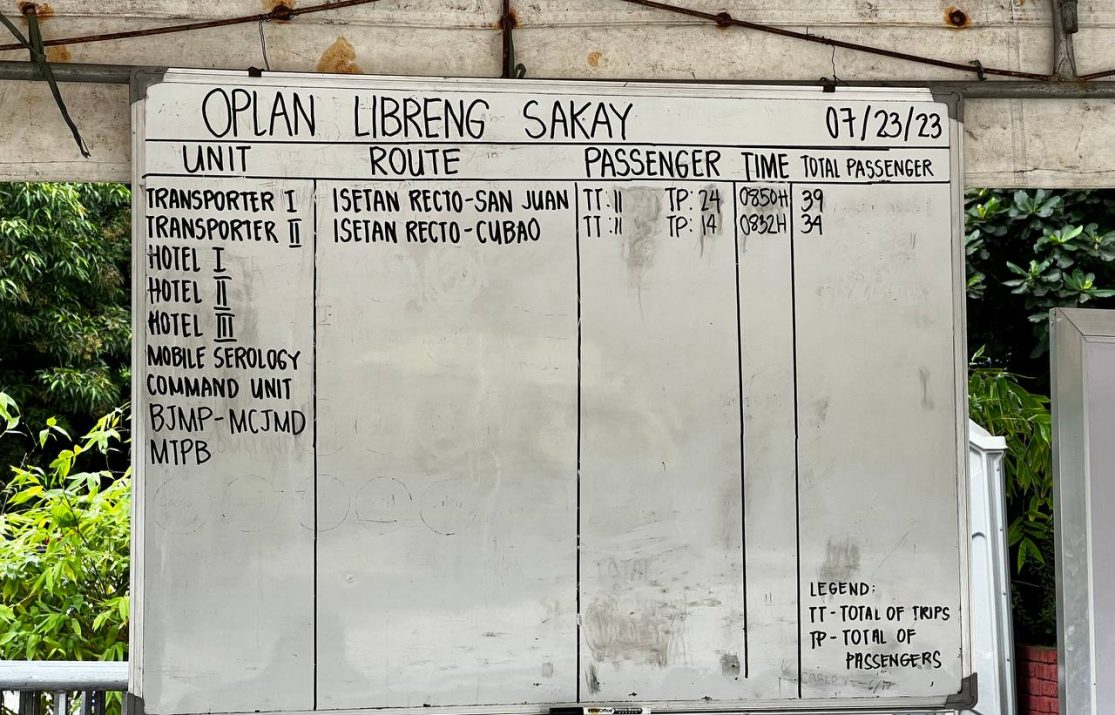 OPLAN LIBRENG SAKAY 07/23/23
UNIT ROUTE PASSENGER TIME TOTAL PASSENGER
TRANSPORTER I ISETAN RECTO-SAN JUAN TT:II TP: 24 0850H 39
TRANSPORTER II ISETAN RECTO-CUBAO TT:II TP: 14 0832H 34
HOTEL I
HOTEL II
HOTEL III
MOBILE SEROLOGY
COMMAND UNIT
BJMP-MCJMD
MTPB
LEGEND:
TT-TOTAL OF TRIPS
TP-TOTAL OF
PASSENGERS